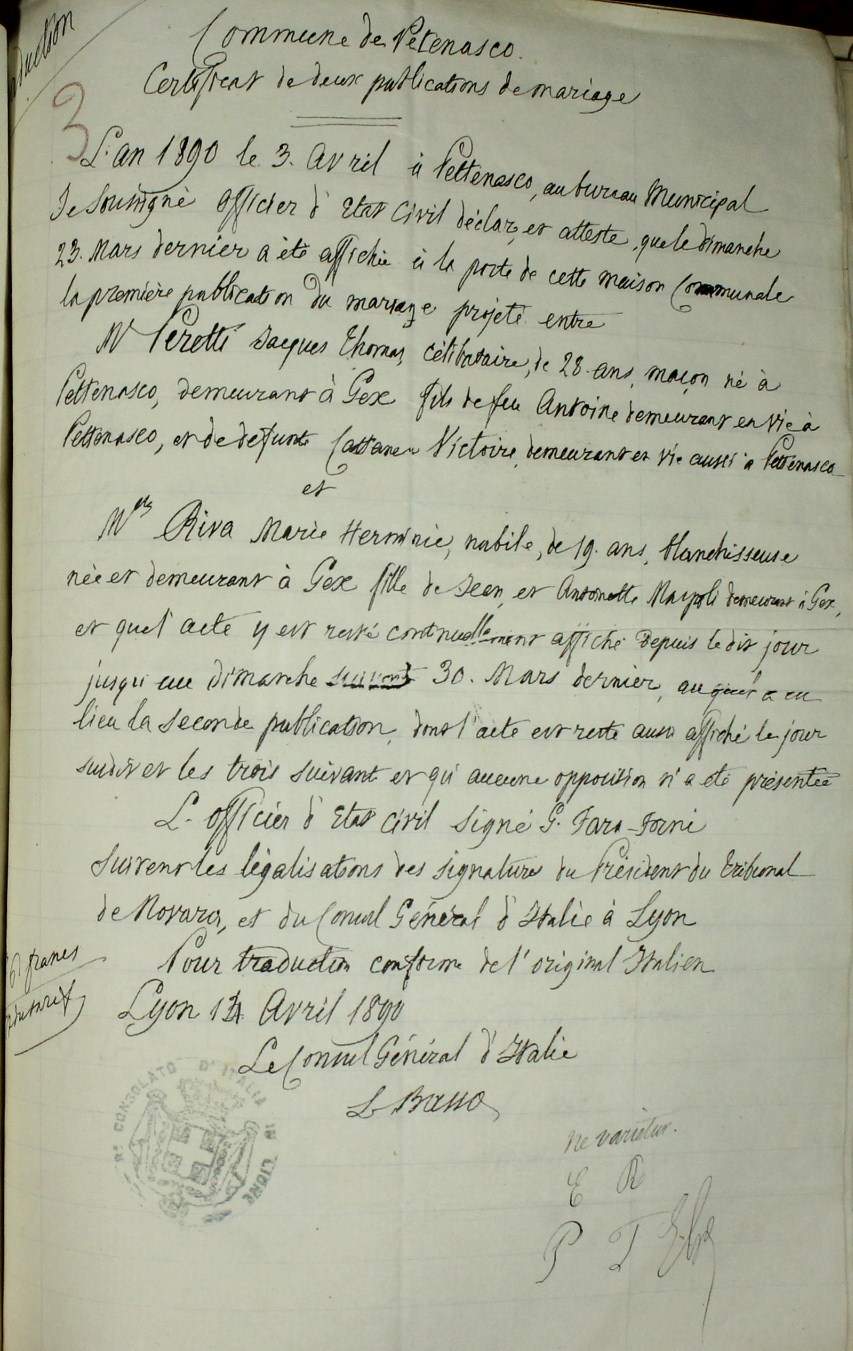 Traduction
Commune de Petenasco.
Certificat de deux publications de mariage
3
L'an 1890 le 3. Avril à Pettenasco, au bureau Municipal
Je Soussigné officier d'Etat Civil déclare, et atteste, que le dimanche
23. Mars dernier a été affichée à la porte de cette maison Communale
la première publication du mariage projeté entre
Mr Peretti Jacques Thomas, célibataire, de 28 ans, maçon né à
Pettenasco, demeurant à Gex fils de feu Antoine demeurant en vie à
Pettenasco, et de defunte Cattanea Victoire, demeurant en vie aussi à Pettenasco
et
Mlle Riva Marie Herminie, nubile, de 19. ans, blanchisseuse
née et demeurant à Gex fille de Jean, et Antoinette demeurant à Gex,
et que l'acte y est resté continuellement affiché depuis le dit jour
jusqu'au dimanche suivant 30. Mars dernier, au a eu
lieu la seconde publication, dont l'acte est resté aussi affiché le jour
susdit et les trois suivant et qu'aucune opposition n'a été présentée
L'officier d'Etat Civil signé G. Fara-Forni
Suivent les légalisations des signature du Président du Tribunal
de Novara, et du Consul Général d'Italie à Lyon
Pour traduction conforme de l'original Italien
6 francs
Lyon 14 Avril 1890
Le Consul Général d'Italie
L Basso
R° CONSOLATO D'ITALIA IN LIONE
Ne varietur.
E R
P J